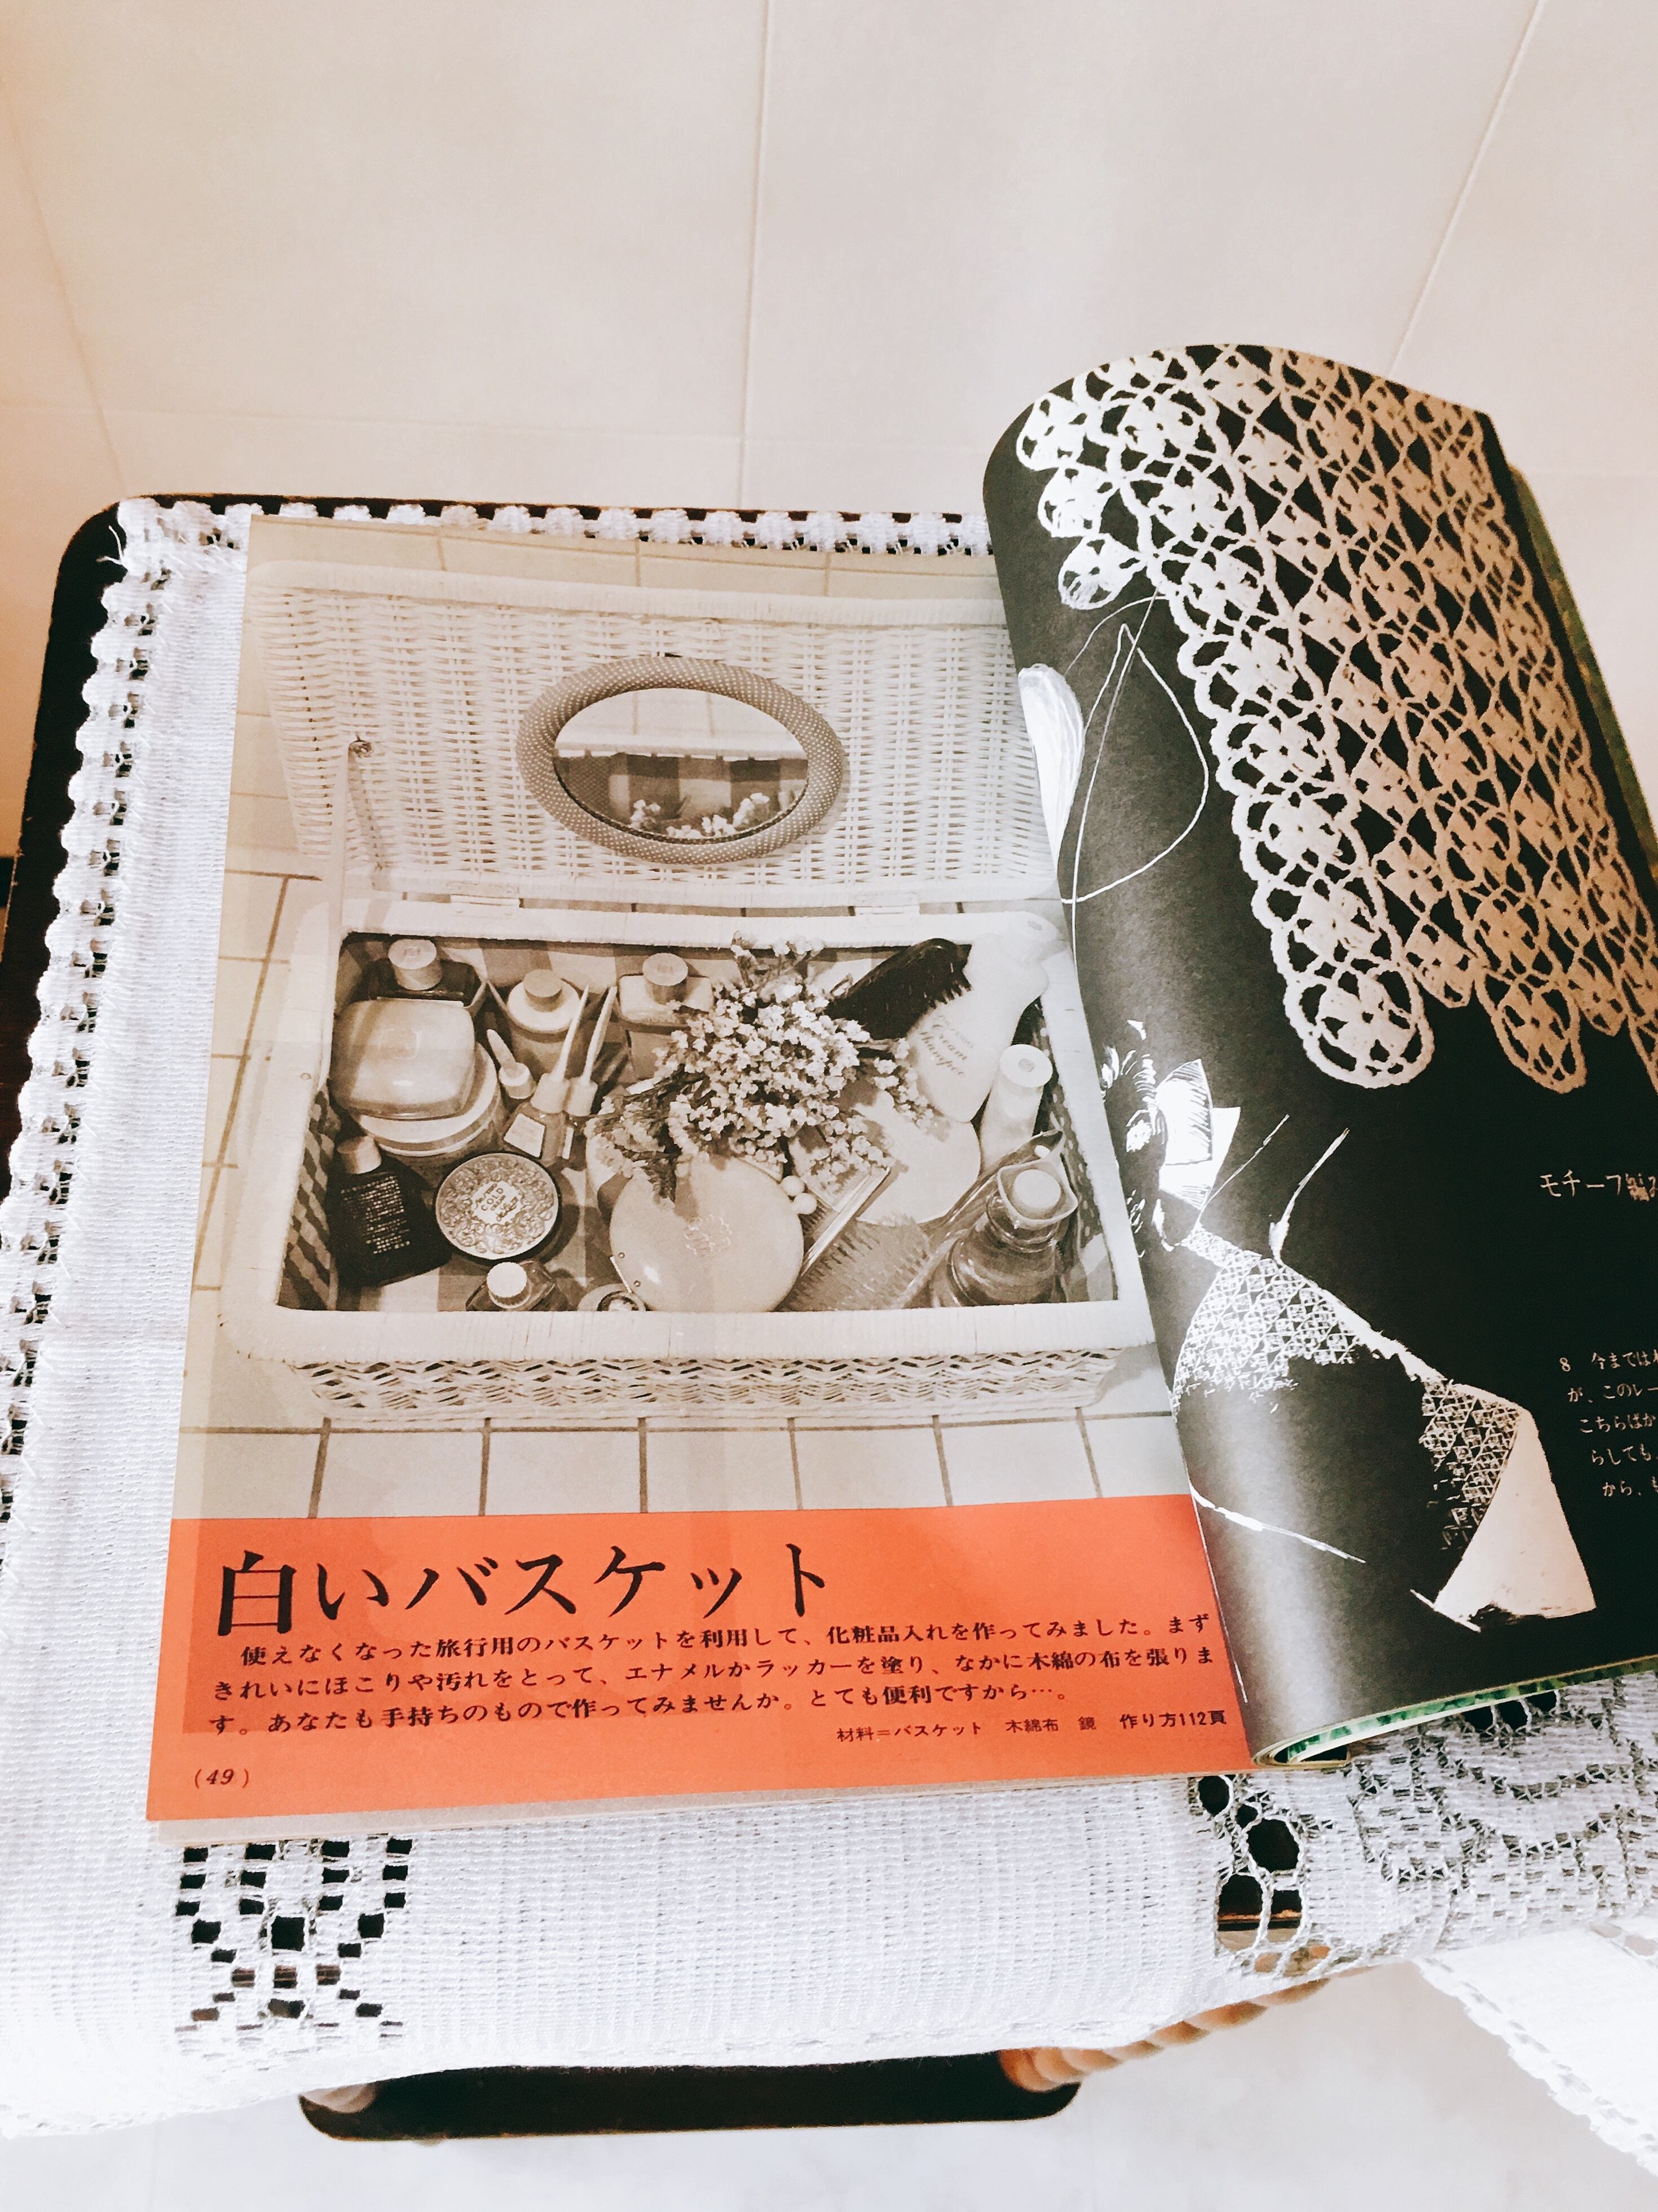 白いバスケット
使えなくなった旅行用のバスケットを利用して、化粧品入れを作ってみました。まず
きれいにほこりや汚れをとって、エナメルかラッカーを塗り、なかに木綿の布を張りま
す。あなたも手持ちのもので作ってみませんか。とても便利ですから…。
材料=バスケット 木綿布 鏡 作り方112頁
(49)
Cream
Shampoo
COLD
モチーフ編み
8 今までは
が、このレー
こちらばか
らしても、
から、も